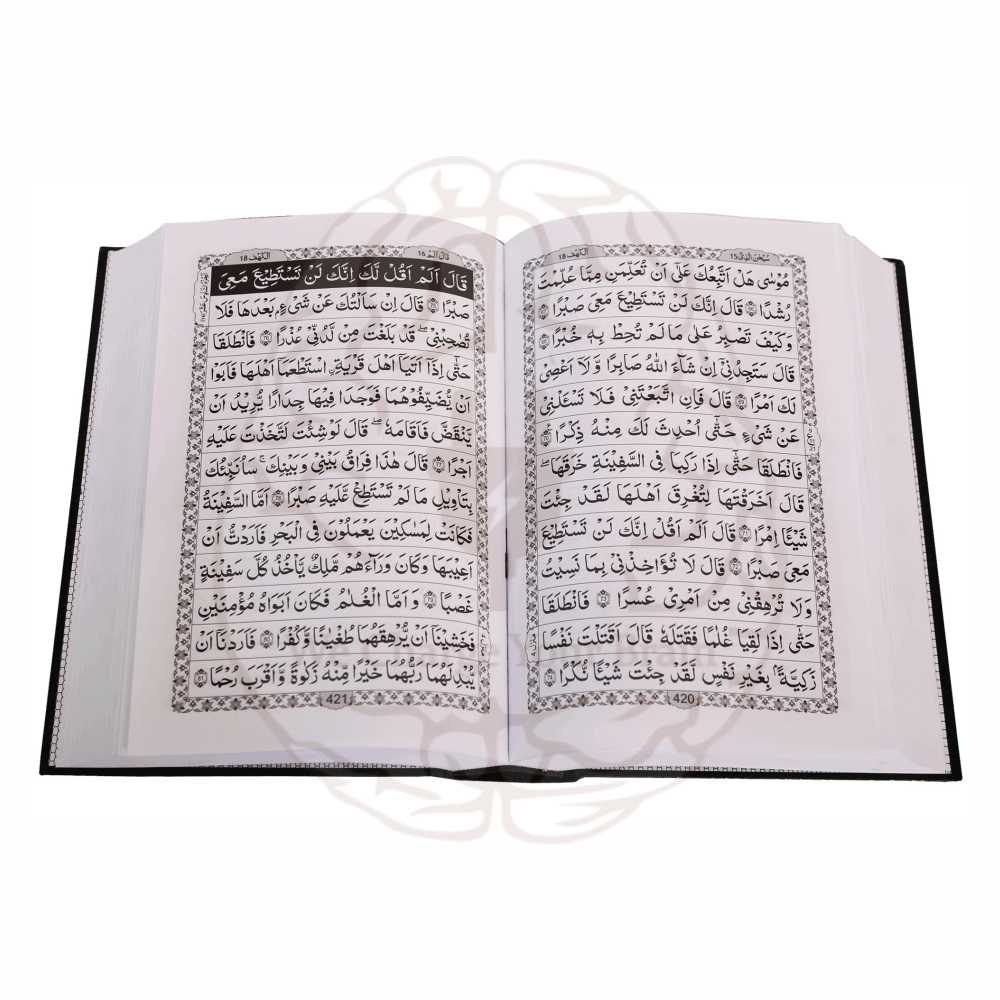 الكهف 18
سبحن الذى 15
مُوْسٰى هَلْ اَتَّبِعُكَ عَلٰٓى اَنْ تُعَلِّمَنِ مِمَّا عُلِّمْتَ
رُشْدًا ﴿٦٦﴾ قَالَ اِنَّكَ لَنْ تَسْتَطِيْعَ مَعِىَ صَبْرًا ﴿٦٧﴾
وَكَيْفَ تَصْبِرُ عَلٰى مَا لَمْ تُحِطْ بِهٖ خُبْرًا ﴿٦٨﴾
قَالَ سَتَجِدُنِىْٓ اِنْ شَآءَ اللّٰهُ صَابِرًا وَّلَآ اَعْصِىْ
لَكَ اَمْرًا ﴿٦٩﴾ قَالَ فَاِنِ اتَّبَعْتَنِىْ فَلَا تَسْـَٔلْنِىْ
عَنْ شَىْءٍ حَتّٰٓى اُحْدِثَ لَكَ مِنْهُ ذِكْرًا ﴿٧٠﴾
فَانْطَلَقَا حَتّٰٓى اِذَا رَكِبَا فِى السَّفِيْنَةِ خَرَقَهَا ؕ
قَالَ اَخَرَقْتَهَا لِتُغْرِقَ اَهْلَهَا لَقَدْ جِئْتَ
شَيْـًٔا اِمْرًا ﴿٧١﴾ قَالَ اَلَمْ اَقُلْ اِنَّكَ لَنْ تَسْتَطِيْعَ
مَعِىَ صَبْرًا ﴿٧٢﴾ قَالَ لَا تُؤَاخِذْنِىْ بِمَا نَسِيْتُ
وَلَا تُرْهِقْنِىْ مِنْ اَمْرِىْ عُسْرًا ﴿٧٣﴾ فَانْطَلَقَا
حَتّٰٓى اِذَا لَقِيَا غُلٰمًا فَقَتَلَهٗ قَالَ اَقَتَلْتَ نَفْسًا
زَكِيَّةً ۢ بِغَيْرِ نَفْسٍ لَقَدْ جِئْتَ شَيْـًٔا نُّكْرًا ﴿٧٤﴾
420
الكهف 18
قال الم 16
قَالَ اَلَمْ اَقُلْ لَّكَ اِنَّكَ لَنْ تَسْتَطِيْعَ مَعِىَ
صَبْرًا ﴿٧٥﴾ قَالَ اِنْ سَاَلْتُكَ عَنْ شَىْءٍۭ بَعْدَهَا فَلَا
تُصٰحِبْنِىْ ۚ قَدْ بَلَغْتَ مِنْ لَّدُنِّىْ عُذْرًا ﴿٧٦﴾ فَانْطَلَقَا
حَتّٰٓى اِذَآ اَتَيَآ اَهْلَ قَرْيَةِ ۟اسْتَطْعَمَآ اَهْلَهَا فَاَبَوْا
اَنْ يُّضَيِّفُوْهُمَا فَوَجَدَا فِيْهَا جِدَارًا يُّرِيْدُ اَنْ
يَّنْقَضَّ فَاَقَامَهٗ ؕ قَالَ لَوْ شِئْتَ لَتَّخَذْتَ عَلَيْهِ
اَجْرًا ﴿٧٧﴾ قَالَ هٰذَا فِرَاقُ بَيْنِىْ وَبَيْنِكَ ۚ سَاُنَبِّئُكَ
بِتَاْوِيْلِ مَا لَمْ تَسْتَطِعْ عَّلَيْهِ صَبْرًا ﴿٧٨﴾ اَمَّا السَّفِيْنَةُ
فَكَانَتْ لِمَسٰكِيْنَ يَعْمَلُوْنَ فِى الْبَحْرِ فَاَرَدْتُّ اَنْ
اَعِيْبَهَا وَكَانَ وَرَآءَهُمْ مَّلِكٌ يَّاْخُذُ كُلَّ سَفِيْنَةٍ
غَصْبًا ﴿٧٩﴾ وَاَمَّا الْغُلٰمُ فَكَانَ اَبَوٰهُ مُؤْمِنَيْنِ
فَخَشِيْنَآ اَنْ يُّرْهِقَهُمَا طُغْيَانًا وَّكُفْرًا ﴿٨٠﴾ فَاَرَدْنَآ اَنْ
يُّبْدِلَهُمَا رَبُّهُمَا خَيْرًا مِّنْهُ زَكٰوةً وَّاَقْرَبَ رُحْمًا ﴿٨١﴾
421